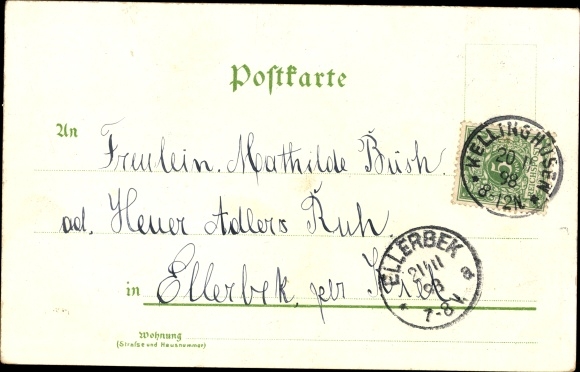 Postkarte
An Freulein. Mathilde Büsh.
ad. Heuer Adlers Ruh.
in Ellerbek, per Kiel
Wohnung
(Strafse und Hausnummer)
* KELLINGHUSEN *
20 11
98
8-12N.
ELLERBEK
21/11
98
* 7-8V. a